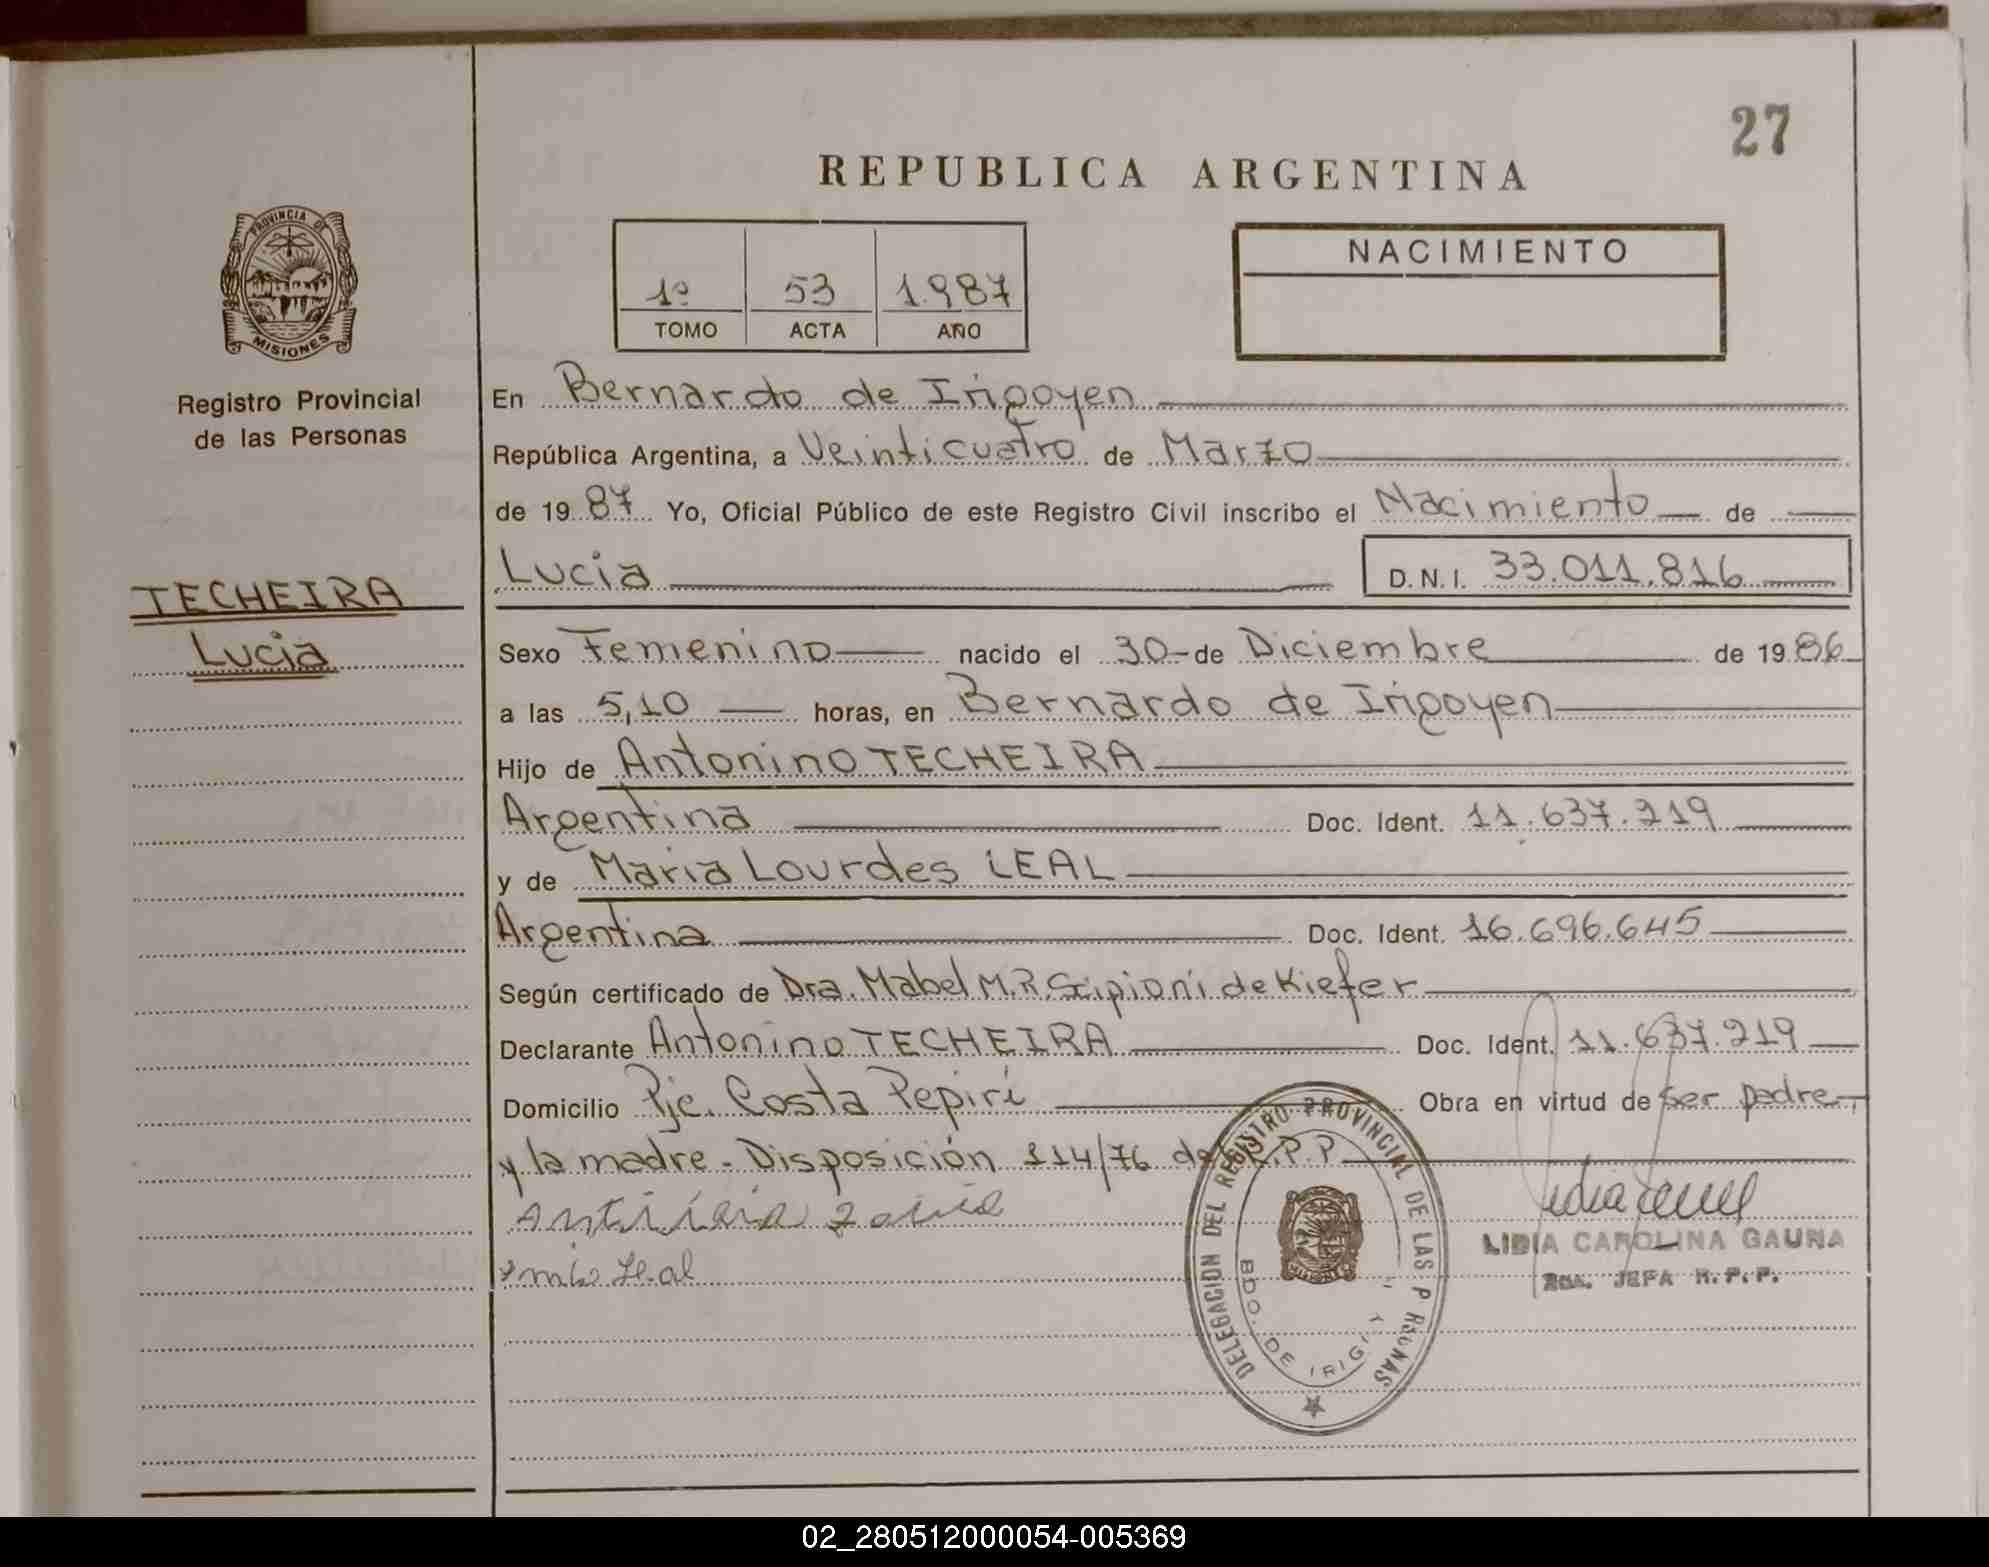 27
REPUBLICA ARGENTINA
PROVINCIA DE
MISIONES
Registro Provincial
de las Personas
1º 53 1.987
TOMO ACTA AÑO
NACIMIENTO
En Bernardo de Irigoyen
República Argentina, a Veinticuatro de Marzo
de 1987 Yo, Oficial Público de este Registro Civil inscribo el Nacimiento de
Lucia D.N.I. 33.011.816
TECHEIRA
Lucia
Sexo Femenino nacido el 30 de Diciembre de 1986
a las 5,10 horas, en Bernardo de Irigoyen
Hijo de Antonino TECHEIRA
Argentina Doc. Ident. 11.637.219
y de Maria Lourdes LEAL
Argentina Doc. Ident. 16.696.645
Según certificado de Dra. Mabel M.R. Scipioni de Kiefer
Declarante Antonino TECHEIRA Doc. Ident. 11.637.219
Domicilio Pje. Costa Pepirí Obra en virtud de ser padre
y la madre - Disposición 114/76 del R.P.P.
Leal
DELEGACION DEL REGISTRO PROVINCIAL DE LAS P RSONAS
BDO. DE IRIG
MISIONES
LIDIA CAROLINA GAUNA
2da. JEFA R.P.P.
02_280512000054-005369